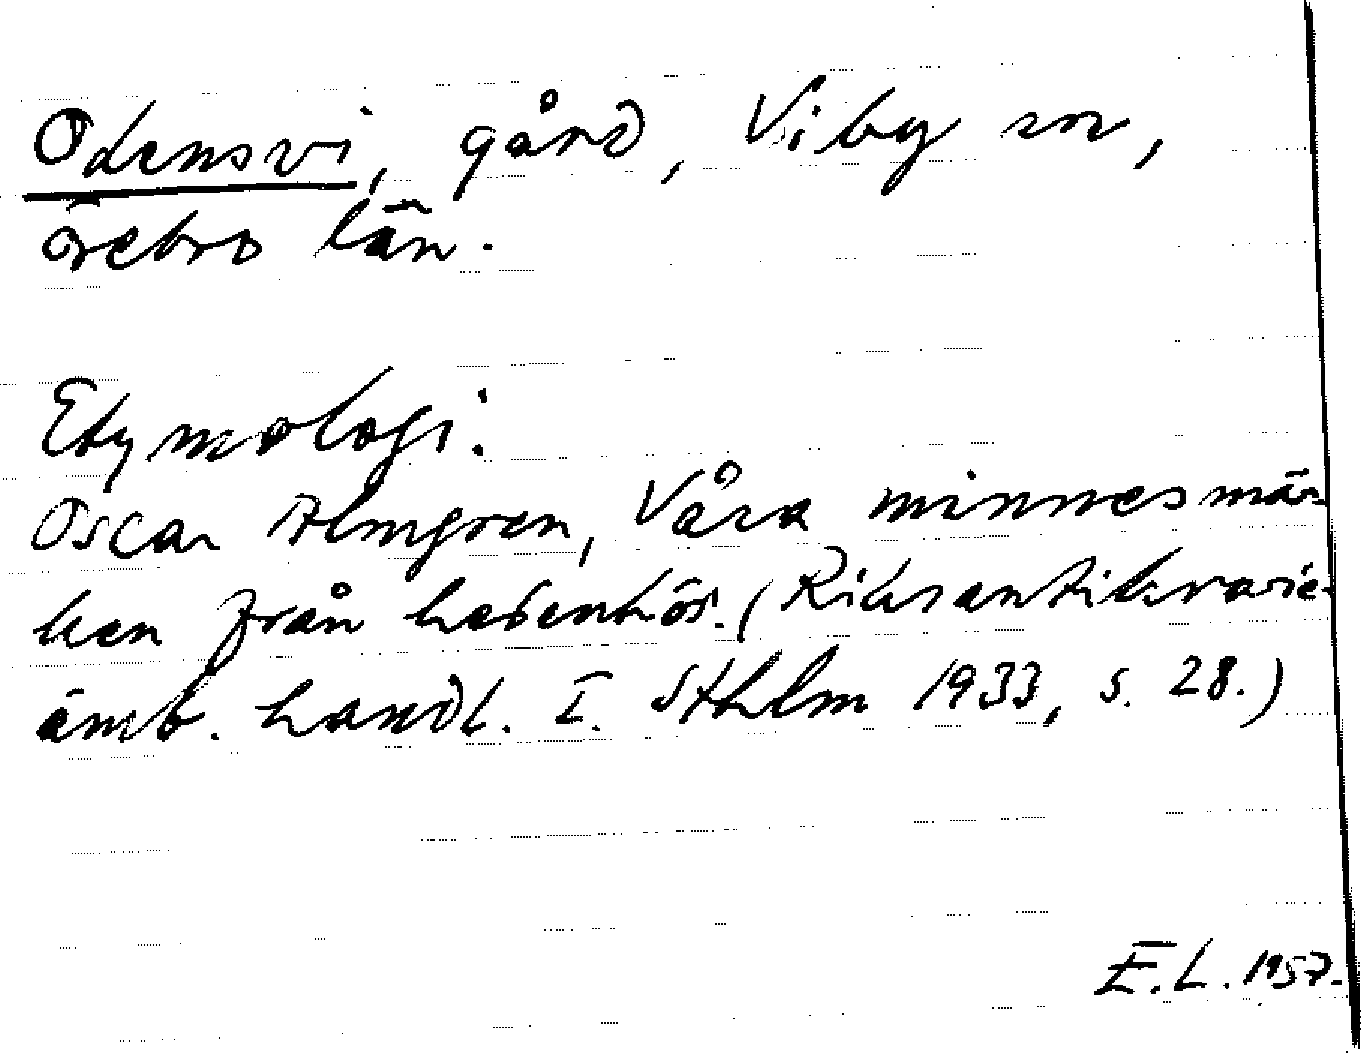 Odensvi, gård, Viby sn,
Örebro län.
Etymologi:
Oscar Almgren, Våra minnesmär-
ken från hedenhös. (Riksantikvarie-
ämb. handl. I. Sthlm 1933, s. 28.)
E.L. 1957.